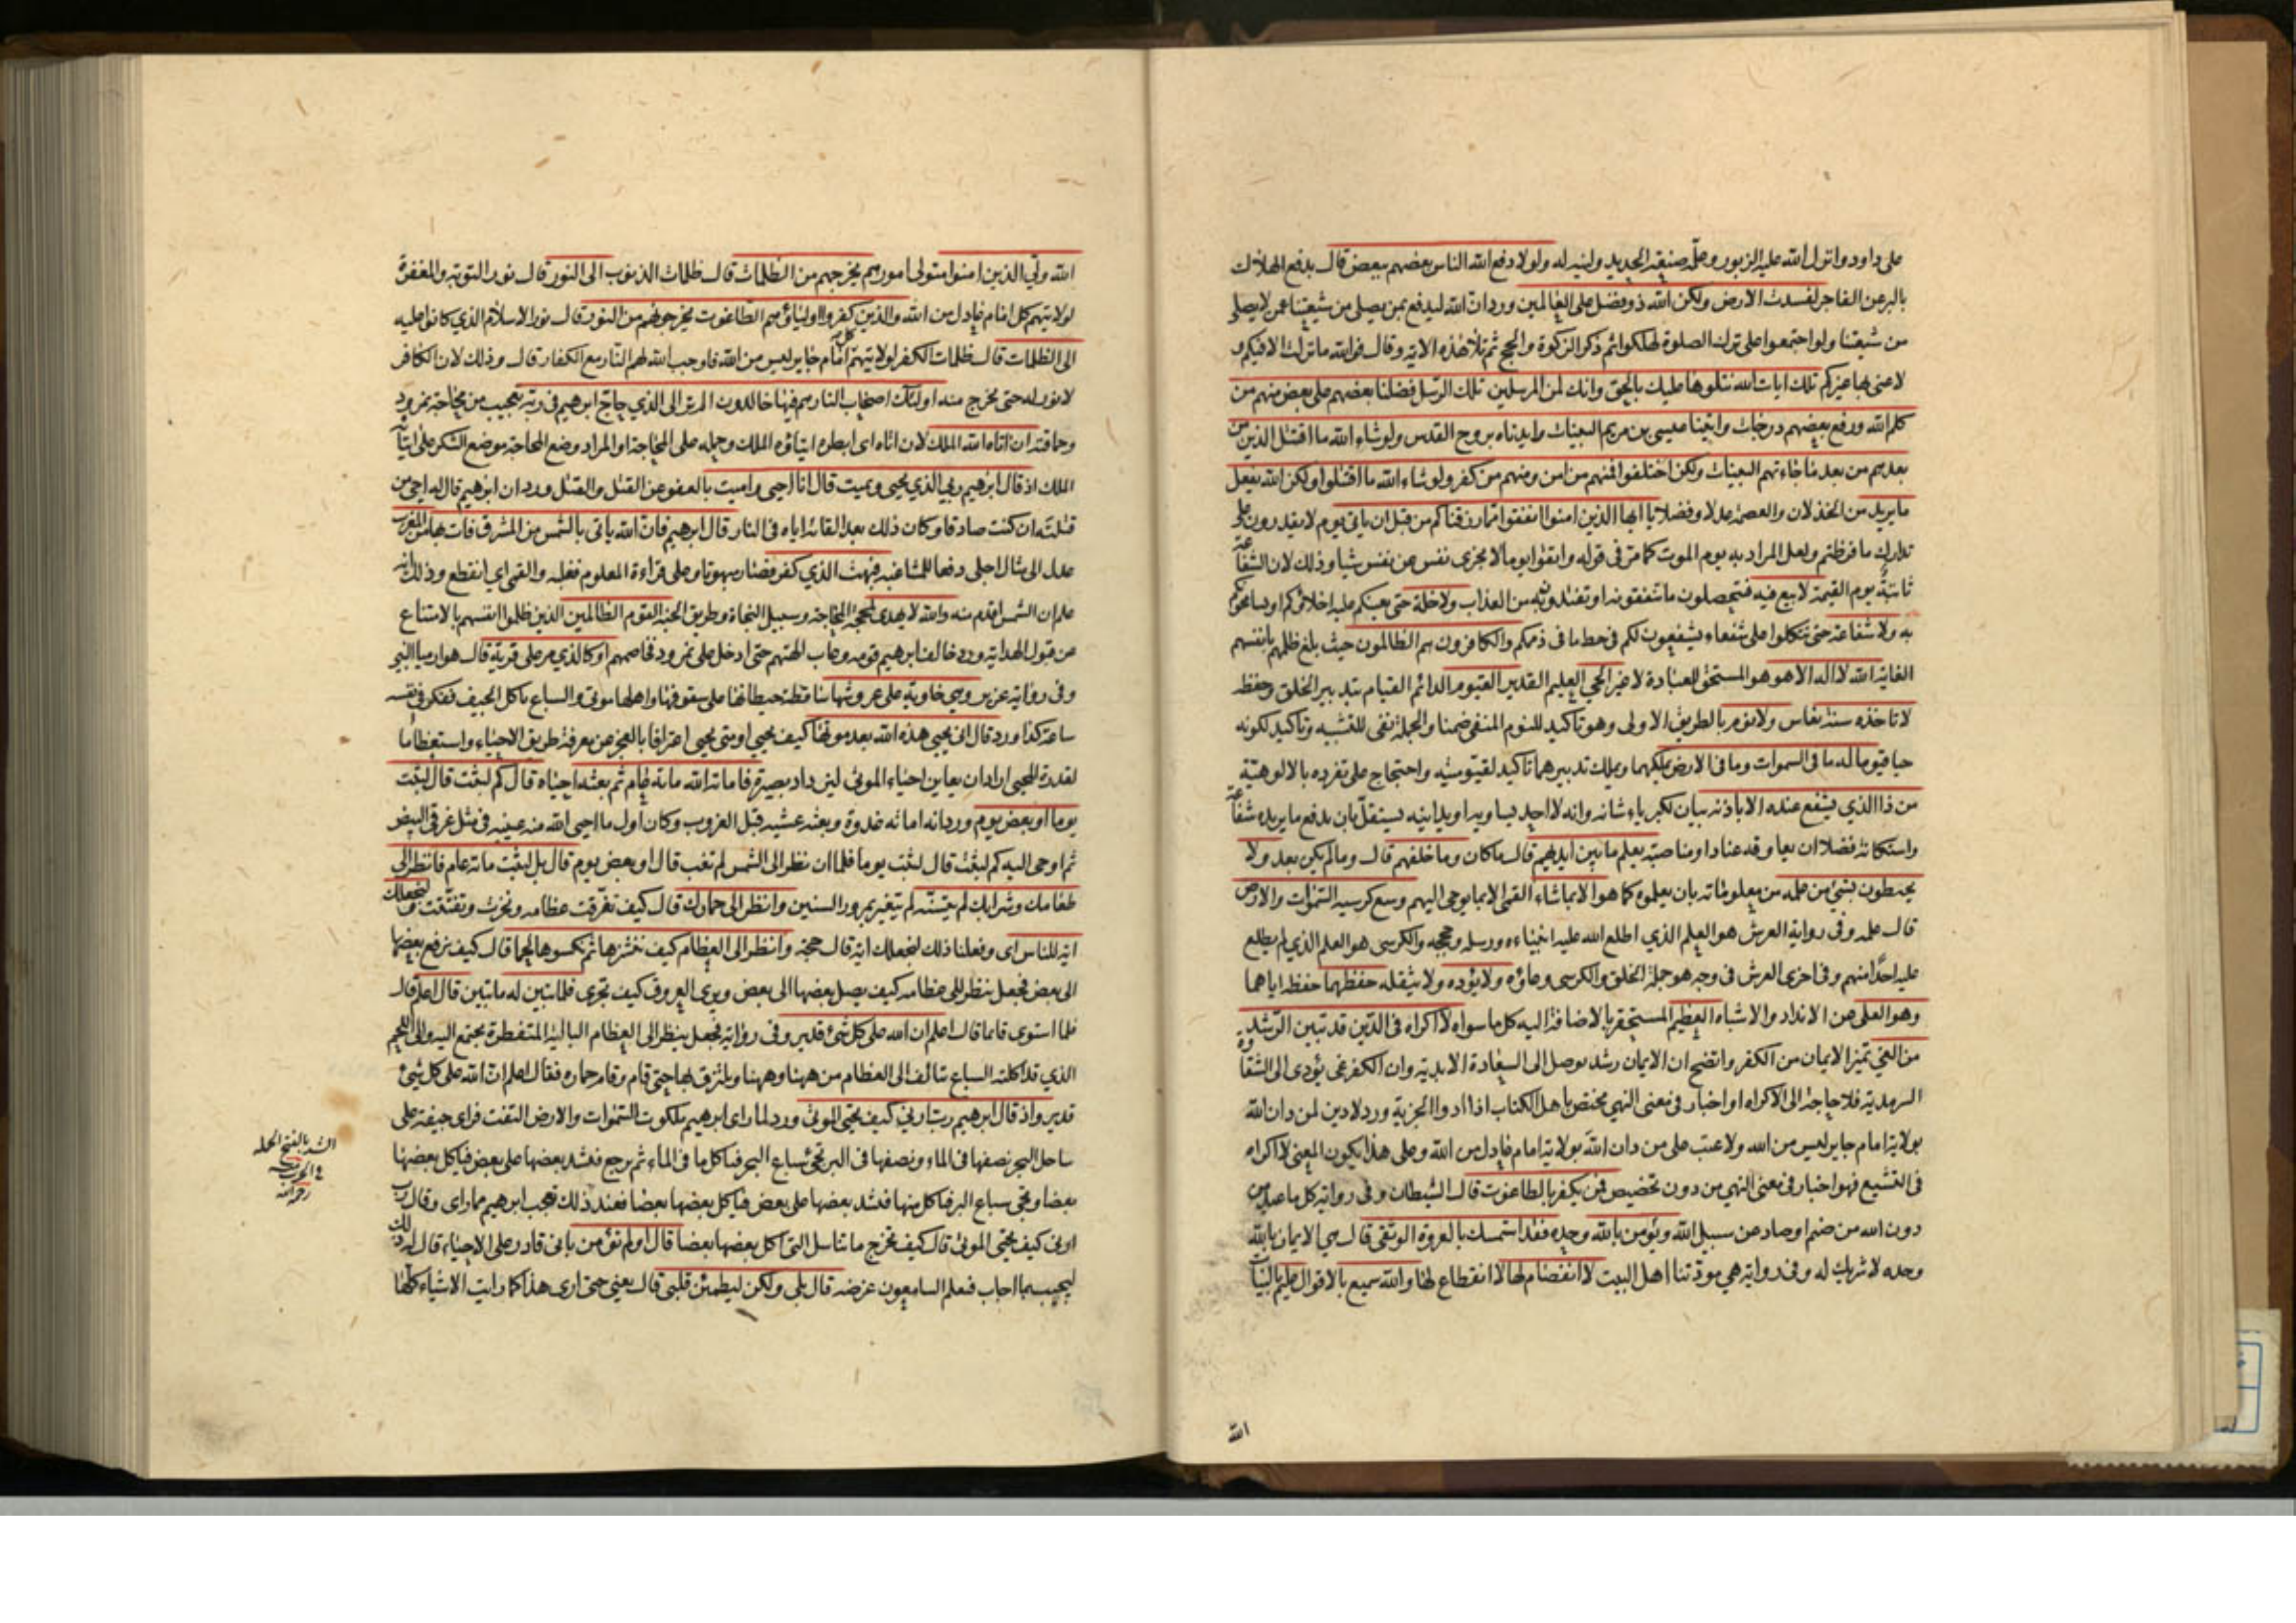 على داود وانزل الله عليه الزبور وعلّمه صنيعة الحديد ولينه له ولولا دفع الله الناس بعضهم ببعض قال يدفع الهلاك
بالبر عن الفاجر لفسدت الارض ولكن الله ذو فضل على العالمين ورد ان الله ليدفع بمن يصلى من شيعتنا عمن لا يصلى
من شيعتنا ولو اجتمعوا على ترك الصلوة لهلكوا ثم ذكر الزكوة والحج ثم تلا هذه الاية وقال فوالله ما نزلت الا فيكم و
لا عنى بها غيركم تلك ايات الله نتلوها عليك بالحق وانك لمن المرسلين تلك الرسل فضلنا بعضهم على بعض منهم من
كلم الله ورفع بعضهم درجات واتينا عيسى بن مريم البينات وايدناه بروح القدس ولو شاء الله ما اقتتل الذين من
بعدهم من بعد ما جاءتهم البينات ولكن اختلفوا فمنهم من امن ومنهم من كفر ولو شاء الله ما اقتتلوا ولكن الله يفعل
ما يريد من الخذلان والعصمة عدلا وفضلا يا ايها الذين امنوا انفقوا مما رزقناكم من قبل ان ياتى يوم لا يقدرون على
تدارك ما فرطتم ولعل المراد به يوم الموت كما مر فى قوله واتقوا يوما لا تجزى نفس عن نفس شيا وذلك لان الشفاعة
ثابتة يوم القيمة لا بيع فيه فتحصلون ما تنفقونه او تفتدون به من العذاب ولا خلة حتى يعينكم عليه اخلاؤكم او يسامحوكم
به ولا شفاعة حتى تتكلوا على شفعاء يشفعون لكم فى حط ما فى ذممكم والكافرون هم الظالمون حيث بلغ ظلمهم بانفسهم
الغاية الله لا اله الا هو هو المستحق للعبادة لا غير الحي العليم القدير القيوم الدائم القيام بتدبير الخلق وحفظه
لا تاخذه سنة نعاس ولا نوم بالطريق الاولى وهو تاكيد للنوم المنفى ضمنا والجملة نفى للتشبيه وتاكيد لكونه
حيا قيوما له ما فى السموات وما فى الارض يملكهما ويملك تدبيرهما تاكيد لقيوميته واحتجاج على تفرده بالالوهية
من ذا الذي يشفع عنده الا باذنه بيان لكبرياء شانه وانه لا احد يساويه او يدانيه يستقل بان يدفع ما يريده شفاعة
واستكانة فضلا ان يعاوقه عنادا ومناصبة يعلم ما بين ايديهم قال ما كان وما خلفهم قال وما لم يكن بعد ولا
يحيطون بشئ من علمه من معلوماته بان يعلموه كما هو الا بما شاء القمى الا بما يوحى اليهم وسع كرسيه السموات والارض
قال علمه وفى رواية العرش هو العلم الذي اطلع الله عليه انبياءه ورسله وحججه والكرسى هو العلم الذي لم يطلع
عليه احدا منهم وفى اخرى العرش فى وجه هو جملة الخلق والكرسى وعاؤه ولا يؤده ولا يثقله حفظهما حفظه اياهما
وهو العلى عن الانداد والاشباه العظيم المستحقر بالاضافة اليه كل ما سواه لا اكراه فى الدين قد تبين الرشد
من الغي تميز الايمان من الكفر واتضح ان الايمان رشد يوصل الى السعادة الابدية وان الكفر غى يؤدى الى الشقاوة
السرمدية فلا حاجة الى الاكراه او اخبار فى معنى النهى مختص باهل الكتاب اذا ادوا الجزية ورد لا دين لمن دان الله
بولاية امام جاير ليس من الله ولا عتب على من دان الله بولاية امام عادل من الله وعلى هذا يكون المعنى لا اكراه
فى التشيع فهو اخبار فى معنى النهى من دون تخصيص فمن يكفر بالطاغوت قال الشيطان وفى رواية كل ما عبد من
دون الله من صنم او صاد عن سبيل الله ويؤمن بالله وحده فقد استمسك بالعروة الوثقى قال هي الايمان بالله
وحده لا شريك له وفى رواية هي مودتنا اهل البيت لا انفصام لها لا انقطاع لها والله سميع بالاقوال عليم بالنيات
الله
الله ولي الذين امنوا متولى امورهم يخرجهم من الظلمات قال ظلمات الذنوب الى النور قال نور التوبة والمغفرة
لولايتهم كل امام عادل من الله والذين كفروا اولياؤهم الطاغوت يخرجونهم من النور قال نور الاسلام الذي كانوا عليه
الى الظلمات قال ظلمات الكفر لولايتهم كل امام جاير ليس من الله فاوجب الله لهم النار مع الكفار قال وذلك لان الكافر
لا نور له حتى يخرج منه اولئك اصحاب النار هم فيها خالدون الم تر الى الذي حاج ابرهيم فى ربه تعجيب من محاجة نمرود
وحماقته ان اتاه الله الملك لان اتاه اى ابطره ايتاؤه الملك وحمله على المحاجة او المراد وضع المحاجة موضع الشكر على ايتائه
الملك اذ قال ابرهيم ربي الذي يحيى ويميت قال انا احيى واميت بالعفو عن القتل والقتل ورد ان ابرهيم قال له احى من
قتلته ان كنت صادقا وكان ذلك بعد القائه اياه فى النار قال ابرهيم فان الله ياتى بالشمس من المشرق فات بها من المغرب
عدل الى مثال اجلى دفعا للمشاغبة فبهت الذي كفر فصار مبهوتا وعلى قراءة المعلوم فغلبه والقمى اي انقطع وذلك انه
علم ان الشمس اقدم منه والله لا يهدى لمحجة المحاجة وسبيل النجاة وطريق الجنة القوم الظالمين الذين ظلموا انفسهم بالامتناع
عن قبول الهداية ورد خالف ابرهيم قومه وعاب الهتهم حتى ادخل على نمرود فخاصمهم او كالذي مر على قرية قال هو ارميا النبي
وفى رواية عزير وهي خاوية على عروشها ساقطة حيطانها على سقوفها واهلها موتى والسباع تاكل الجيف ففكر فى نفسه
ساعة كذا ورد قال انى يحيى هذه الله بعد موتها كيف يحيى او متى يحيى اعترافا بالعجز عن معرفة طريق الاحياء واستعظاما
لقدرة المحيى اراد ان يعاين احياء الموتى ليزداد بصيرة فاماته الله مائة عام ثم بعثه احياه قال كم لبثت قال لبثت
يوما او بعض يوم ورد انه اماته غدوة وبعثه عشية قبل الغروب وكان اول ما احيى الله منه عينيه فى مثل غرقئ البيض
ثم اوحى اليه كم لبثت قال لبثت يوما فلما ان نظر الى الشمس لم تغب قال او بعض يوم قال بل لبثت مائة عام فانظر الى
طعامك وشرابك لم يتسنه لم يتغير بمرور السنين وانظر الى حمارك قال كيف تفرقت عظامه ونخرت وتفتتت ولنجعلك
اية للناس اى وفعلنا ذلك لنجعلك اية قال حجة وانظر الى العظام كيف ننشزها ثم نكسوها لحما قال كيف نرفع بعضها
الى بعض فجعل ينظر الى عظامه كيف يصل بعضها الى بعض ويرى العروق كيف تجرى فلما تبين له ما تبين قال اعلم قال
فلما استوى قائما قال اعلم ان الله على كل شئ قدير وفى رواية فجعل ينظر الى العظام البالية المتفطرة يجتمع اليه والى اللحم
الذي قد اكلته السباع يتالف الى العظام من ههنا وههنا ويلتزق بها حتى قام وقام حماره فقال اعلم ان الله على كل شئ
قدير واذ قال ابرهيم رب ارنى كيف تحيى الموتى ورد لما راى ابرهيم ملكوت السموات والارض التفت فراى جيفة على
ساحل البحر نصفها فى الماء ونصفها فى البر تجئ سباع البحر فتاكل ما فى الماء ثم يرجع فتشد بعضها على بعض فياكل بعضها
بعضا وتجى سباع البر فتاكل منها فتشد بعضها على بعض فياكل بعضها بعضا فعند ذلك تعجب ابرهيم مما راى وقال رب
ارنى كيف تحيى الموتى قال كيف تخرج ما تناسل التى اكل بعضها بعضا قال اولم تؤمن بانى قادر على الاحياء قال له ذلك
ليجيب بما اجاب فيعلم السامعون غرضه قال بلى ولكن ليطمئن قلبى قال يعنى حتى ارى هذا كما رايت الاشياء كلها
الشد بالفتح الحملة
فى الحرب